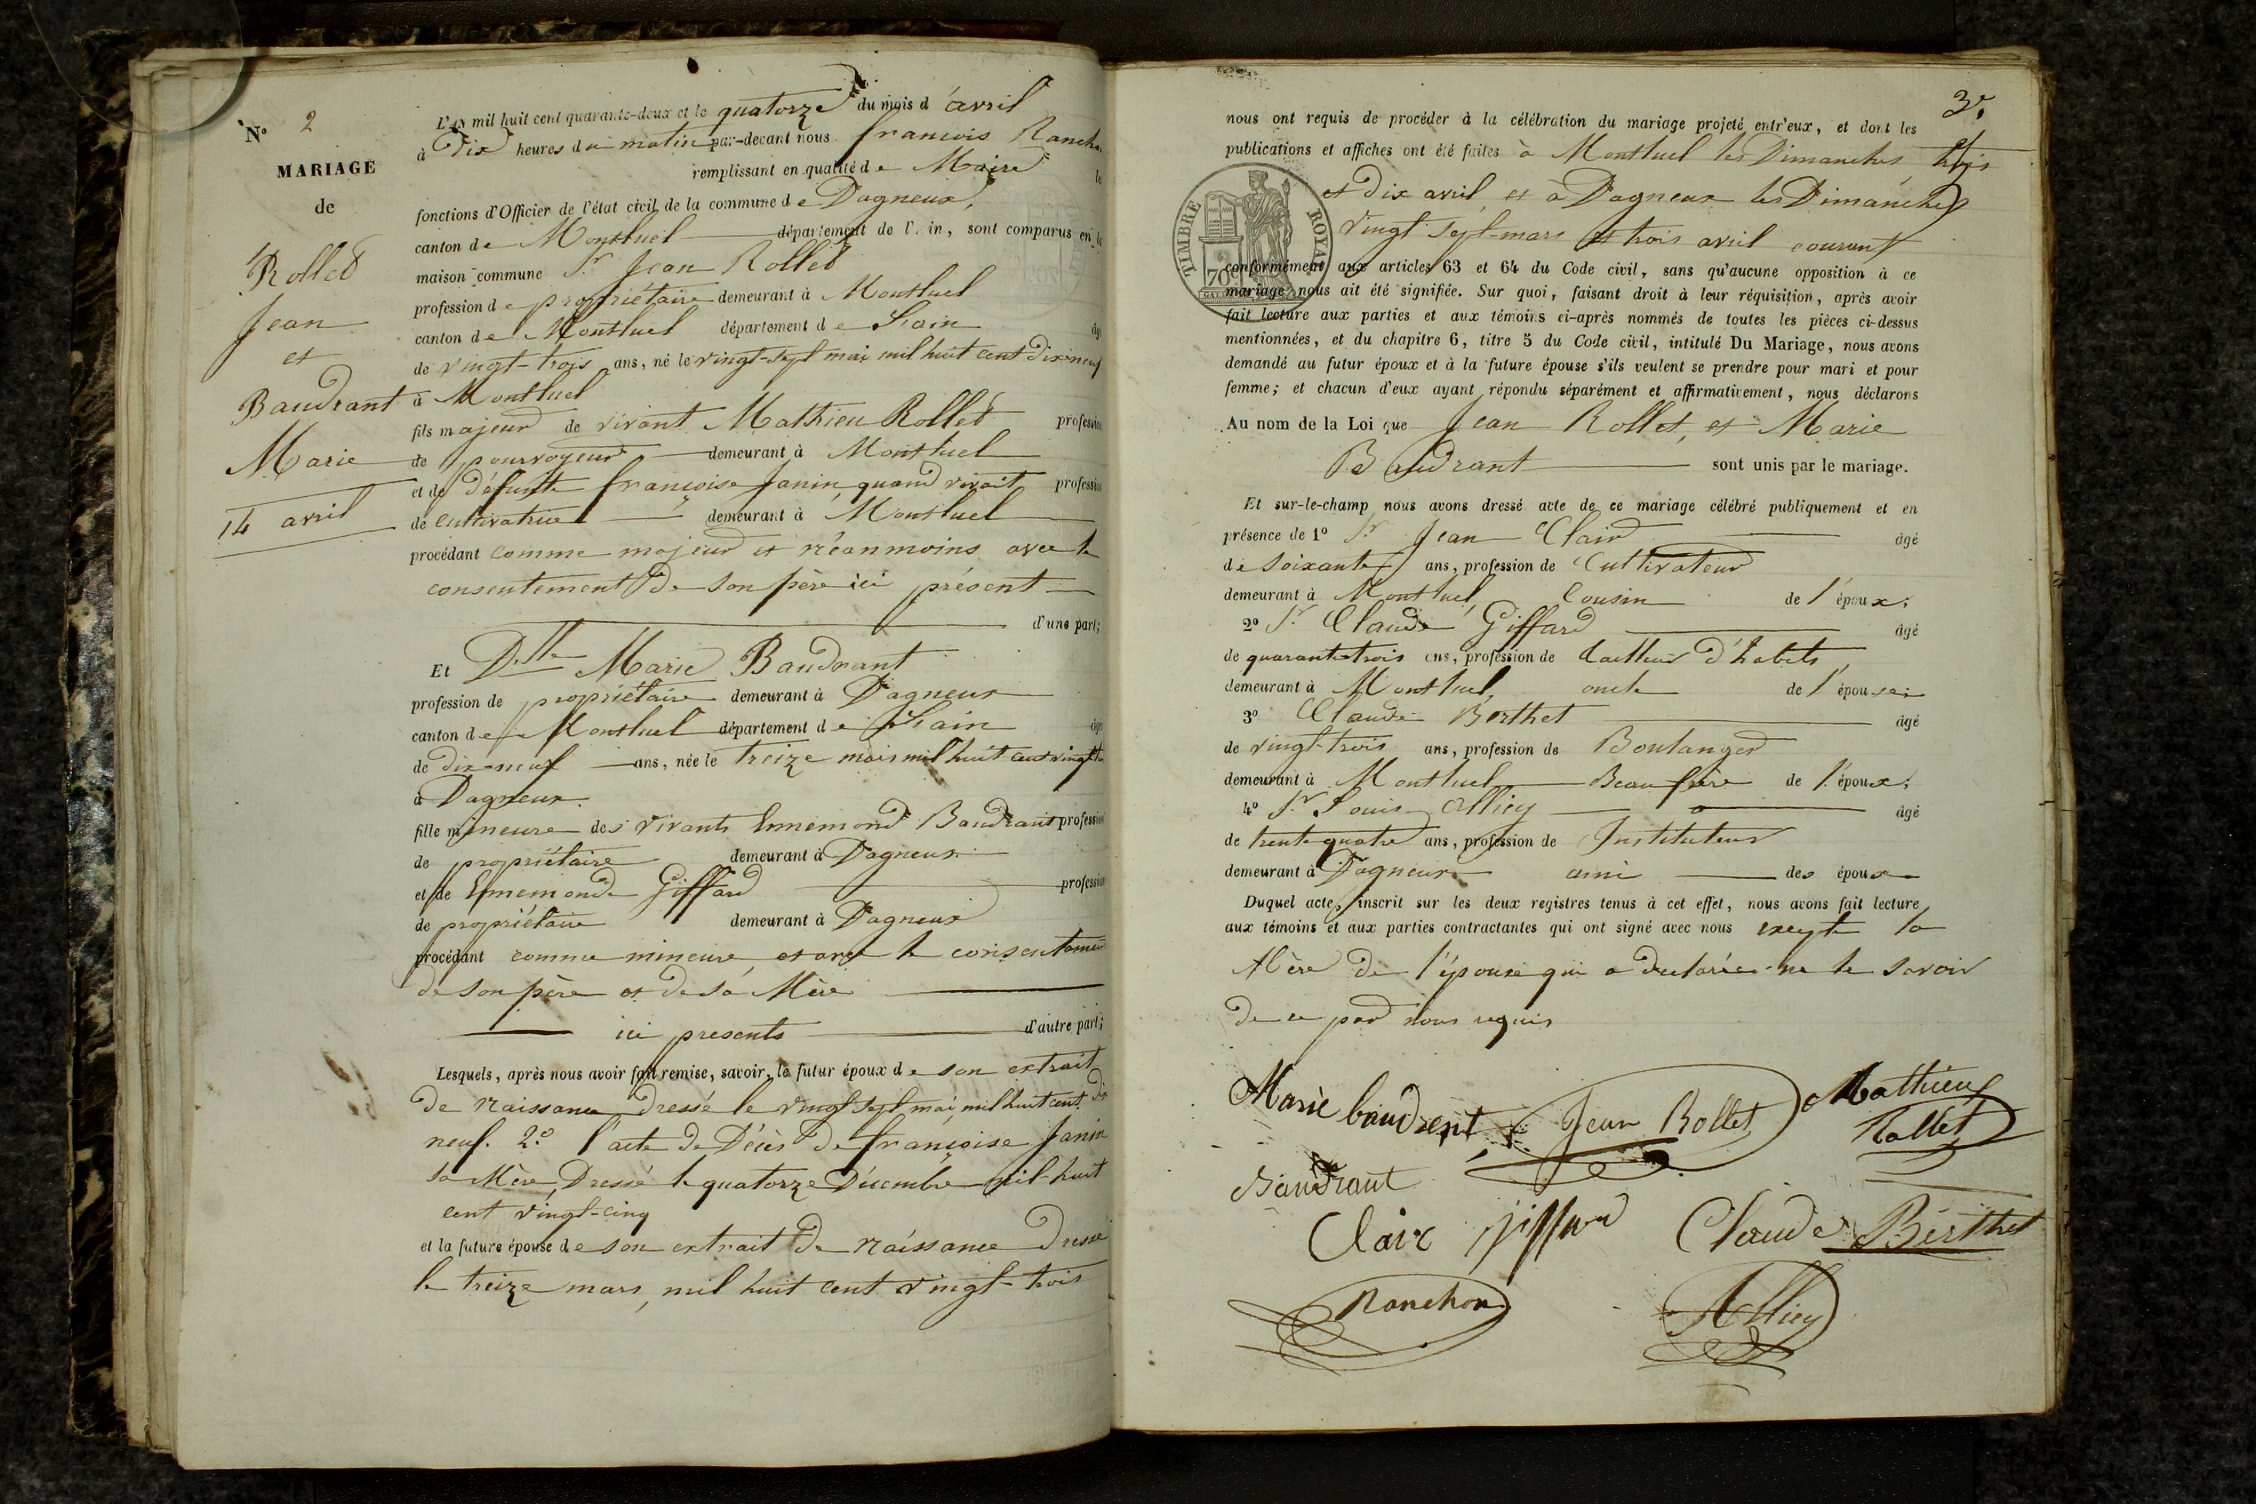 N° 2
MARIAGE
de
Rollet
Jean
et
Baudrant
Marie
14 avril
L'an mil huit cent quarante-deux et le quatorze du mois d'avril
à Dix heures du matin par-devant nous francois Ranchon
remplissant en qualité de Maire le
fonctions d'Officier de l'état civil de la commune de Dagneux,
canton de Montluel département de l'Ain, sont comparus en la
maison commune Sr Jean Rollet
profession de propriétaire demeurant à Montluel
canton de Montluel département de L'ain âgé
de vingt-trois ans, né le vingt-sept mai mil huit cent dix neuf
à Montluel
fils majeur de vivant Mathieu Rollet profession
de pourvoyeur demeurant à Montluel
et de défunte francoise Janin, quand vivait profession
de cultivatrice demeurant à Montluel
procédant comme majeur et néanmoins avec le
consentement de son père ici présent
d'une part;
Et Delle Marie Baudrant
profession de propriétaire demeurant à Dagneux
canton de Montluel département de L'ain âgé
de dix-neuf ans, née le treize mars mil huit cent vingt
à Dagneux.
fille mineure des vivants Ennemond Baudrant profession
de propriétaire demeurant à Dagneux
et de Ennemonde Giffard profession
de propriétaire demeurant à Dagneux
procédant comme mineure, et avec le consentement
de son père et de sa Mère
ici presents d'autre part;
Lesquels, après nous avoir fait remise, savoir, le futur époux de son extrait
de naissance dressé le vingt sept mai, mil huit cent dix
neuf. 2° l'acte de Décès de françoise Janin
sa Mère, Dressé le quatorze Décembre mil-huit
cent vingt-cinq
et la future épouse de son extrait de naissance dressé
le treize mars, mil huit cent vingt-trois
3e.
nous ont requis de procéder à la célébration du mariage projeté entr'eux, et dont les
publications et affiches ont été faites à Montluel les Dimanches trois
et dix avril, et à Dagneux les Dimanches
vingt sept-mars et trois avril courant
TIMBRE ROYAL
70c
conformément aux articles 63 et 64 du Code civil, sans qu'aucune opposition à ce
mariage nous ait été signifiée. Sur quoi, faisant droit à leur réquisition, après avoir
fait lecture aux parties et aux témoins ci-après nommés de toutes les pièces ci-dessus
mentionnées, et du chapitre 6, titre 5 du Code civil, intitulé Du Mariage, nous avons
demandé au futur époux et à la future épouse s'ils veulent se prendre pour mari et pour
femme; et chacun d'eux ayant répondu séparément et affirmativement, nous déclarons
Au nom de la Loi que Jean Rollet, et Marie
Baudrant sont unis par le mariage.
Et sur-le-champ nous avons dressé acte de ce mariage célébré publiquement et en
présence de 1° Sr Jean Clair âgé
de soixante ans, profession de Cultivateur
demeurant à Montluel, Cousin de l'époux.
2° Sr Claude Giffard âgé
de quarante-trois ans, profession de tailleur d'habits,
demeurant à Montluel, oncle de l'épouse;
3° Claude Berthet âgé
de vingt-trois ans, profession de Boulanger
demeurant à Montluel Beau frère de l'époux.
4° Sr Louis Alliey âgé
de trente-quatre ans, profession de Instituteur
demeurant à Dagneux ami des époux
Duquel acte, inscrit sur les deux registres tenus à cet effet, nous avons fait lecture
aux témoins et aux parties contractantes qui ont signé avec nous excepté la
Mère de l'épouse qui a declarée ne le savoir
de ce par nous requis
Marie baudrent Jean Rollet Mathieu
Rollet
Baudrant
Clair giffard Claude Berthet
Ranchon Alliey